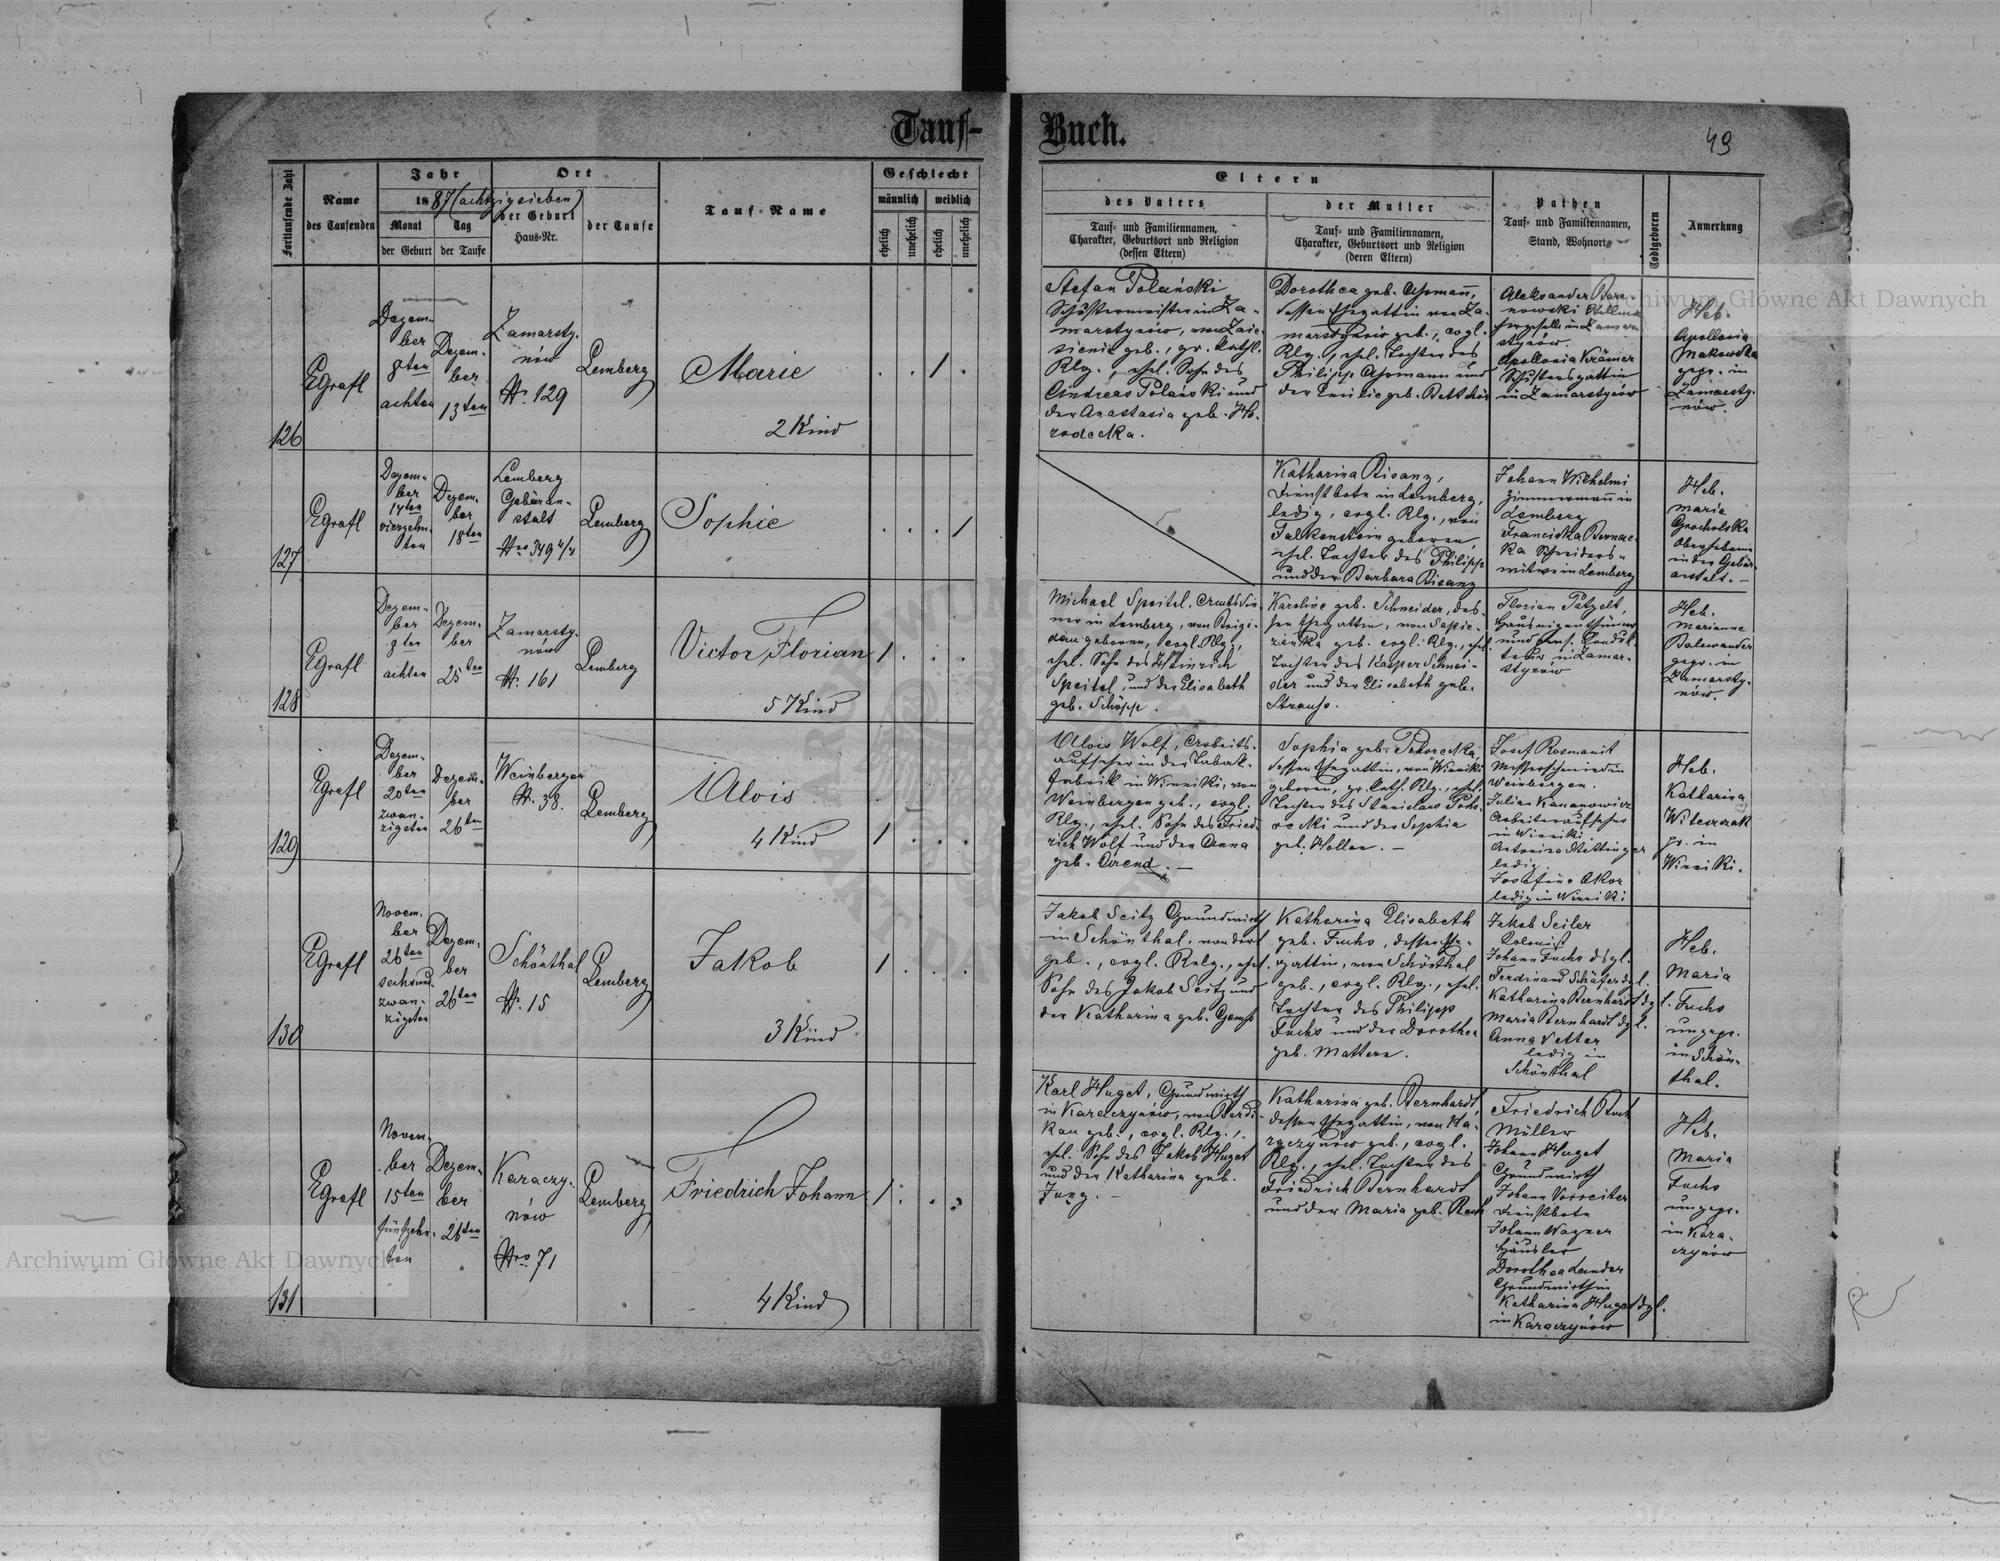 Tauf-
Buch.
49
Fortlaufende Zahl
Name
des Taufenden
Jahr
1887 (achtzigsieben)
Monat
der Geburt
Tag
der Taufe
Ort
der Geburt
Haus-Nr.
der Taufe
Tauf-Name
Geschlecht
männlich
weiblich
ehelich
unehelich
ehelich
unehelich
Eltern
des Vaters
Tauf- und Familiennamen,
Charakter, Geburtsort und Religion
(dessen Eltern)
der Mutter
Tauf- und Familiennamen,
Charakter, Geburtsort und Religion
(deren Eltern)
Pathen
Tauf- und Familiennamen,
Stand, Wohnort
Todtgeboren
Anmerkung
126
Egrafl
Dezem-
ber
8ten
achten
Dezem-
ber
13ten
Zamarsty-
nów
Nr. 129
Lemberg
Marie
2 Kind
1
Stefan Polański
Schustermeister in Za-
marstynów, von
geb., gr. kathl.
Rlg., ehel. Sohn des
Andreas Polański und
der Anastasia geb. Ho-
rodecka.
Dorothea geb.
dessen Ehegattin von Za-
marstynów geb., evgl.
Rlg., ehel. Tochter des
Philipp und
der geb.
Aleksander Bara-
nowski
in Zamar-
stynów.
Apollonia Krämer
Schustersgattin
in Zamarstynów
Heb.
Apollonia
Makowska
gepr. in
Zamarsty-
nów.
127
Egrafl
Dezem-
ber
14ten
vierzehn-
ten
Dezem-
ber
18ten
Lemberg
Gebäran-
stalt
Nro 349 4/4
Lemberg
Sophie
1
Katharina Bisanz,
Dienstbote in Lemberg,
ledig, evgl. Rlg., von
Falkenstein geboren,
ehel. Tochter des Philipp
und der Barbara Bisanz
Johann Wilhelmi
Zimmermann in
Lemberg
Franciska
Schneiders-
witwe in Lemberg
Heb.
Marie
Grocholska
Oberhebame
in der Gebär-
anstalt. –
128
Egrafl
Dezem-
ber
8ten
achten
Dezem-
ber
25ten
Zamarsty-
nów
Nr. 161
Lemberg
Victor Florian
5 Kind
1
Michael Speitel, Amtsdie-
ner in Lemberg, von Reigi-
dau geboren, evgl. Rlg.,
ehel. Sohn des Heinrich
Speitel, und der Elisabeth
geb. Schöpp.
Karoline geb. Schneider, des-
sen Ehegattin, von Sapie-
zanka geb. evgl. Rlg., ehel.
Tochter des Kasper Schnei-
der und der Elisabeth geb.
Strauss.
Florian Pätzelt,
Hauseigenthümer
und pens. Konduk-
teur in Zamar-
stynów
Heb.
Marianne
gepr. in
Zamarsty-
nów.
129
Egrafl
Dezem-
ber
20ten
zwan-
zigsten
Dezem-
ber
26ten
Weinbergen
Nr. 38.
Lemberg
Alois
4 Kind
1
Alois Wolf, Arbeits-
aufseher in der Tabak-
fabrik in Winniki, von
Weinbergen geb., evgl.
Rlg., ehel. Sohn des Fried-
rich Wolf und der Anna
geb. Arend. –
Sophia geb.
dessen Ehegattin, von Winniki
geboren, gr. kath. Rlg., ehel.
Tochter des Stanislaus
und der Sophia
geb. Hollar. –
Josef Rosmanit
Messerschmied in
Weinbergen.
Julian Kananowicz
Arbeiteraufseher
in Winniki.
Antonina
ledig
Josefine
ledig in Winniki
Heb.
Katharina
Witeszczak
in
Winniki.
130
Egrafl
Novem-
ber
26ten
sechsund-
zwan-
zigsten
Dezem-
ber
26ten
Schönthal
Nr. 15
Lemberg
Jakob
3 Kind
1
Jakob Seitz Grundwirth
in Schönthal, von dort
geb., evgl. Relg., ehel.
Sohn des Jakob Seitz und
der Katharina geb.
Katharina Elisabeth
geb. Fuchs, dessen Ehe-
gattin, von Schönthal
geb., evgl. Rlg., ehel.
Tochter des Philipp
Fuchs und der Dorothea
geb. Mattern.
Jakob Seiler
Kolonist
Johann Fuchs dsgl.
Ferdinand Schäfer dgl.
Katharina Bernhardt dgl.
Maria Bernhardt dgl.
Anna Vetter
ledig in
Schönthal
Heb.
Maria
Fuchs
ungepr.
in Schön-
thal.
131
Egrafl
Novem-
ber
15ten
fünfzehn-
ten
Dezem-
ber
26ten
Karaczy-
nów
Nro 71
Lemberg
Friedrich Johann
4 Kind
1
Karl Huget, Grundwirth
in Karaczynów, von Berdi-
kau geb., evgl. Rlg.,
ehel. Sohn des Jakob Huget
und der Katharina geb.
Jung. –
Katharina geb. Bernhardt,
dessen Ehegattin, von Ka-
raczynów geb., evgl.
Rlg., ehel. Tochter des
Friedrich Bernhardt
und der Maria geb.
Friedrich
Müller
Johann Huget
Grundwirth
Johann Vorreiter
Dienstbote
Johann Wagner
Häusler
Dorothea Lander
Grundwirthin
Katharina Huget dgl.
in Karaczynów
Heb.
Maria
Fuchs
ungepr.
in Kara-
czynów
Archiwum Główne Akt Dawnych
Archiwum Główne Akt Dawnych